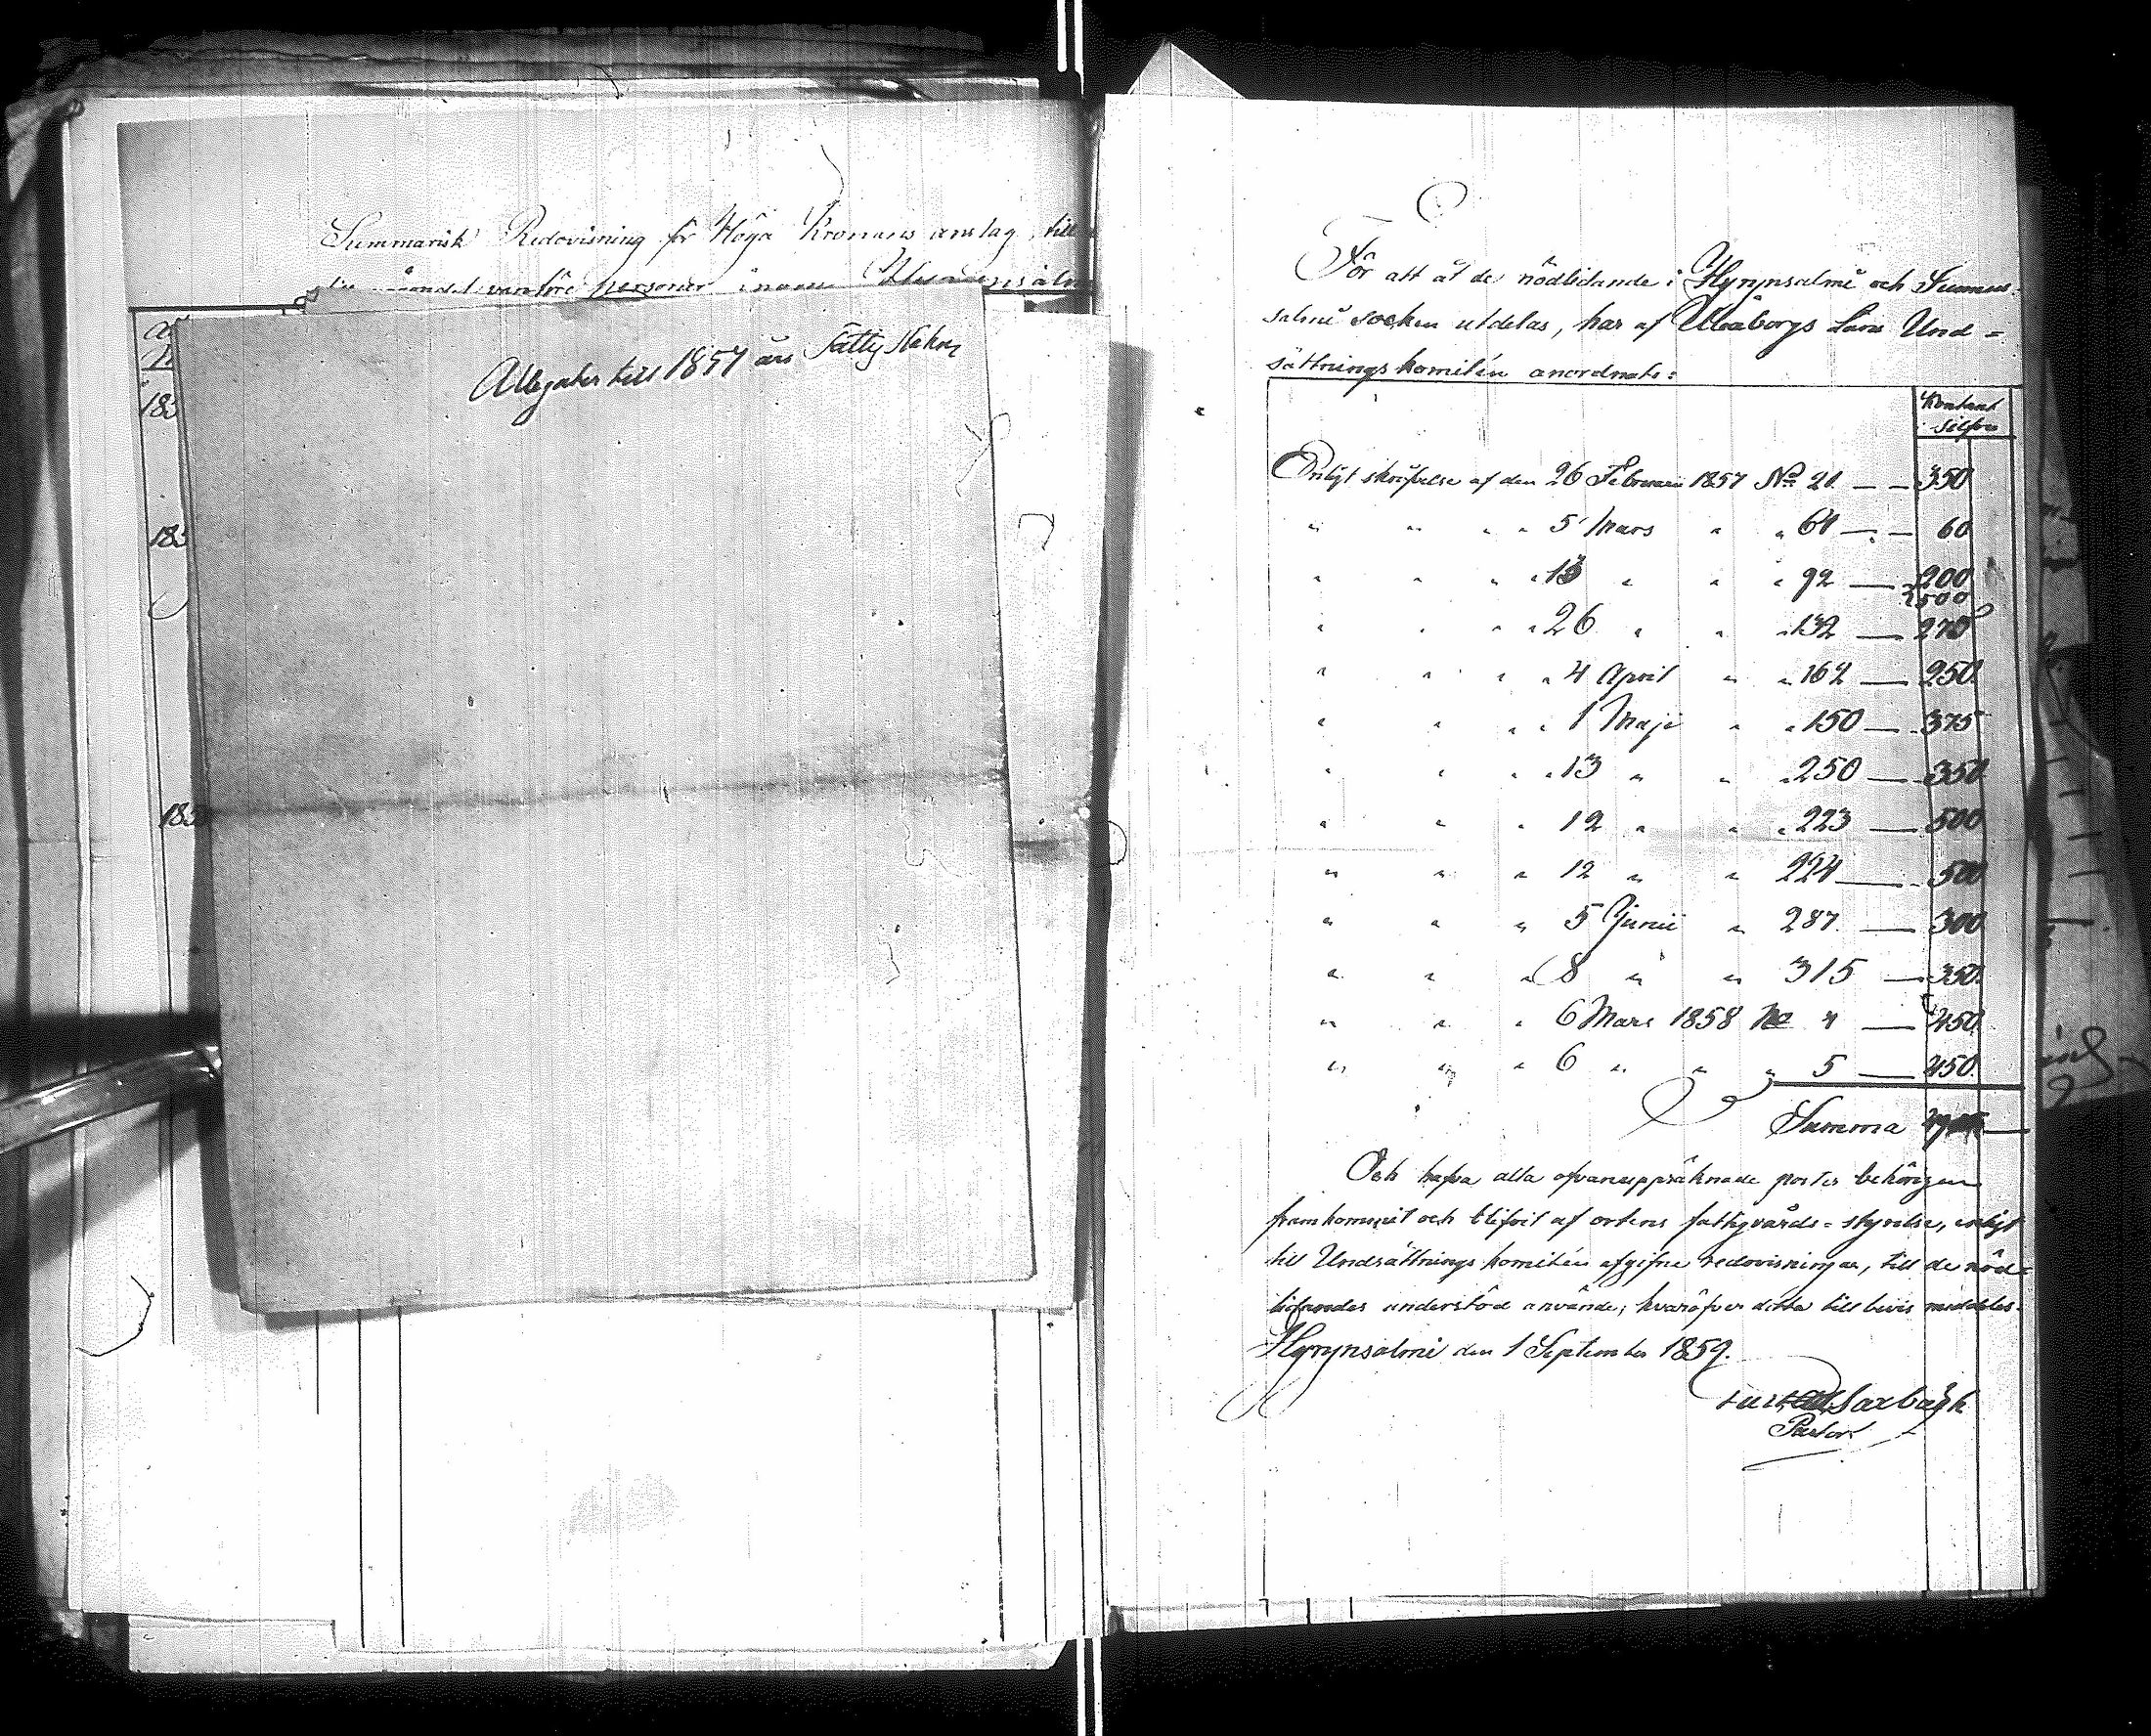 Summarisk Redovisning för Höga Kronans anslag, till
personer inom
183
183
183
Allegater till 1857 års Fattig
För att åt de nödlidande i Hyrynsalmi och Suomus-
salmi socken utdelas, har af Uleåborgs Läns Und=
sättningskomitén anordnats:
Kontant
Silfver
Enligt skrifvelse af den 26 Februari 1857 No 21 — — 350
" " " " 5 Mars " " 64 — — 60
" " " " 13 " " " 92 — 200
500
" " " " 26 " " " 132 — 270
" " " " 4 April " " 162 — 250
" " " " 1 Maji " " 150 — 375
" " " " 13 " " " 250 — 350
" " " 12 " " " 223 — 500
" " " 12 " " 224 — 500
" " " 5 Junii " 287 — 300
" " " 8 " " 315 — 350
" " " 6 Mars 1858 No 4 — 450
" " " 6 " " " 5 — 450
Summa
Och hafva alla ofvanuppräknade poster behörigen
framkommit och blifvit af ortens fattigvårds-styrelse, enligt
till Undsättningskomitén afgifne redovisningar, till de nöd=
lidandes understöd använde; hvaröfver detta till bevis meddelas.
Hyrynsalmi den 1 September 1859.
Saxbäck
Pastor